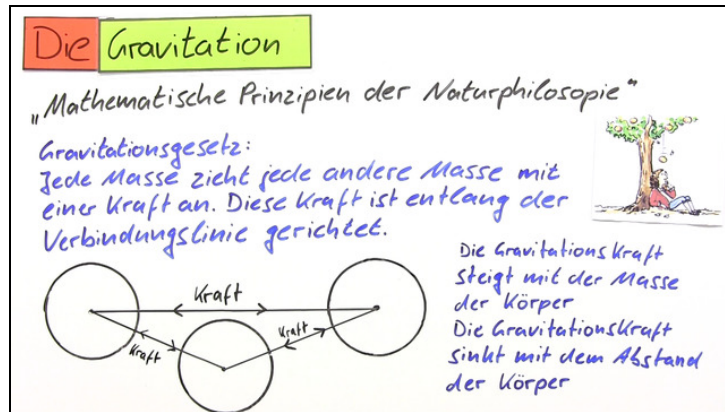 Die Gravitation
„Mathematische Prinzipien der Naturphilosopie“
Gravitationsgesetz:
Jede Masse zieht jede andere Masse mit
einer Kraft an. Diese Kraft ist entlang der
Verbindungslinie gerichtet.
Die Gravitationskraft
steigt mit der Masse
der Körper
Die Gravitationskraft
sinkt mit dem Abstand
der Körper
Kraft
Kraft
Kraft